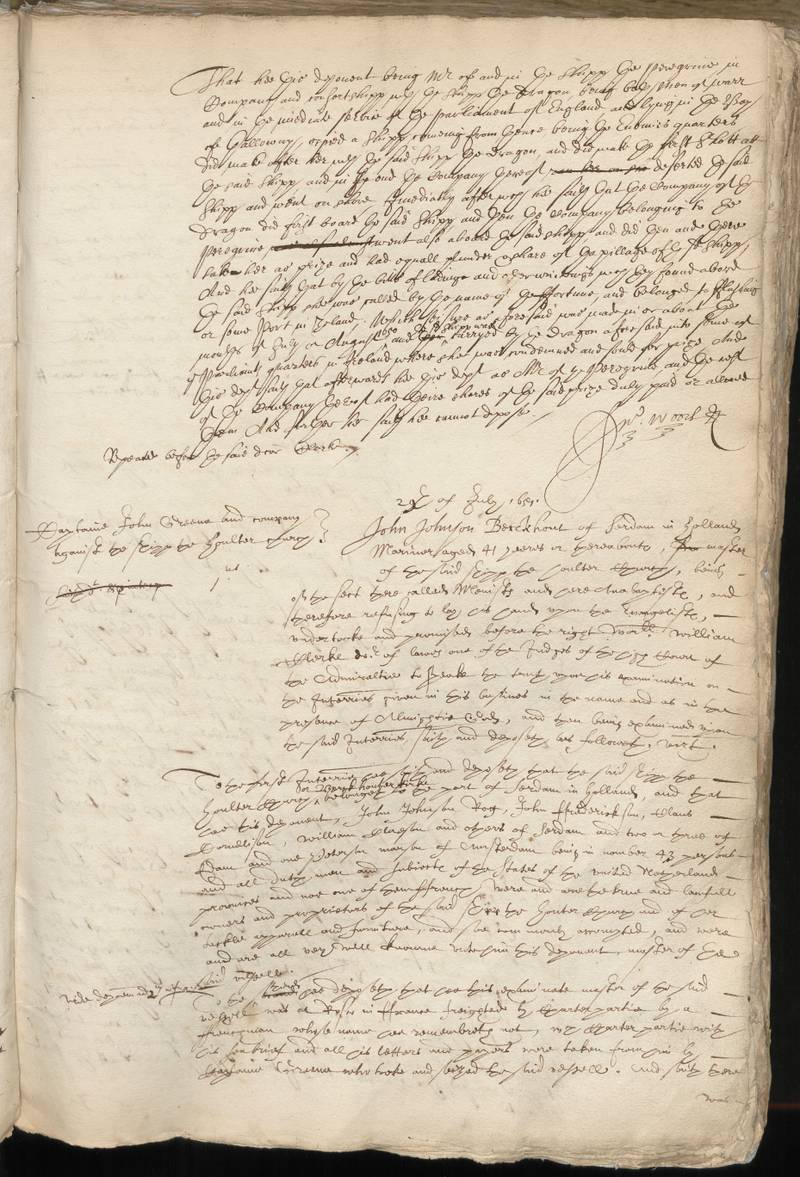 That hee this deponent being Mr of and in the shipp the Peregrine in
Company and consortshipp with the shipp the Dragon being both men of warr
and in the imediate service of the parliament of England and lying in the Bay
of Galloway, espied a shipp coming from thence being the Enemies quarters
did make after her with the said shipp the Dragon, and did make the first shott att
the said shipp, and in the end the Company thereof deserted the said
shipp and went on shore Imediatly after which hee saith that the Company of the
Dragon did first board the said shipp and then the Company belonging to the
Peregrine went also aboard the said shipp and did then and there
take her as prize and had equall plunder & share of the pillage of the shipp,
And hee saith that by the bills of ladinge and other writings which they found aboard
the said shipp shee was called by the name of the ffortune, and belonged to fflushing
or some Port in Zeland, Which seizure as aforesaid was made in or about the
moneths of July or August 1650 and the shipp was carryed by the Dragon aforesaid into some of
the Parliaments quarters in Ireland where shee was condemned and sould for prize And
this dept saith that afterwards hee this dept as Mr of the Peregrine and the rest
of the Company thereof had theire shares of the said prize duly paid or allowed
them And further hee saith hee cannot depose.
Wood
Repeated before the said doctor Clerk.
of July 1651.
Captaine John Greene and company
against the shipp the Houlter Church
John Johnson Berckhout of Serdam in Holland
Mariner aged 41 yeares or thereabouts, master
of the said shipp the Houlter Church, being
of the sect there called Menists and here Anabaptists, and
therefore refusing to lay his hands upon the Evangelists,
undertooke and promised before the right Worll William
Clerke dcr of lawes one of the Judges of the high Court of
the Admiraltie to speake the truth upon his examination on
the Interries given in this busines in the name and as in the
presence of Almightie God, and then being examined upon
the said Interries, saith and deposeth as followeth, vizt.
To the first Interrie hee saith and deposeth that the said shipp the
Houlter Church belongeth to the port of Serdam in Holland, and that
hee this deponent, John Johnson Rog, John ffrederickson, Claus
Cornelison, William Claeson and others of Serdam and two or three of
Edam and one Peterson of Amsterdam being in number 43 persons
and all dutch men and subiects of the States of the united Netherland
provinces and not one of them ffrench were and are the true and lawfull
owners and proprietors of the said shipp the Houlter Church and of her
tackle apparell and furniture, and soe comonly accompted, and were
and are all very well knowne unto him this deponent, master of the
said vessell.
To the hee deposeth that hee this examinate master of the said
vessell was at in ffrance freighted by charter partie by a
frenchman whose name hee remembreth not, which charter partie with
his sea brief and all his letters and papers were taken from him by
Captaine Greene who tooke and seized the said vessell. And saith there
was